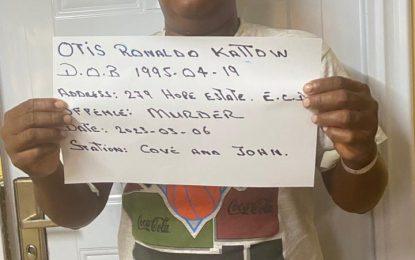 OTIS RONALDO KATTOW
D.O.B 1995-04-19
ADDRESS: 279 HOPE ESTATE. E.C.D
OFFENCE: MURDER
DATE: 2023-03-06
STATION: COVE AND JOHN.
Coca-Cola
Coca-Cola